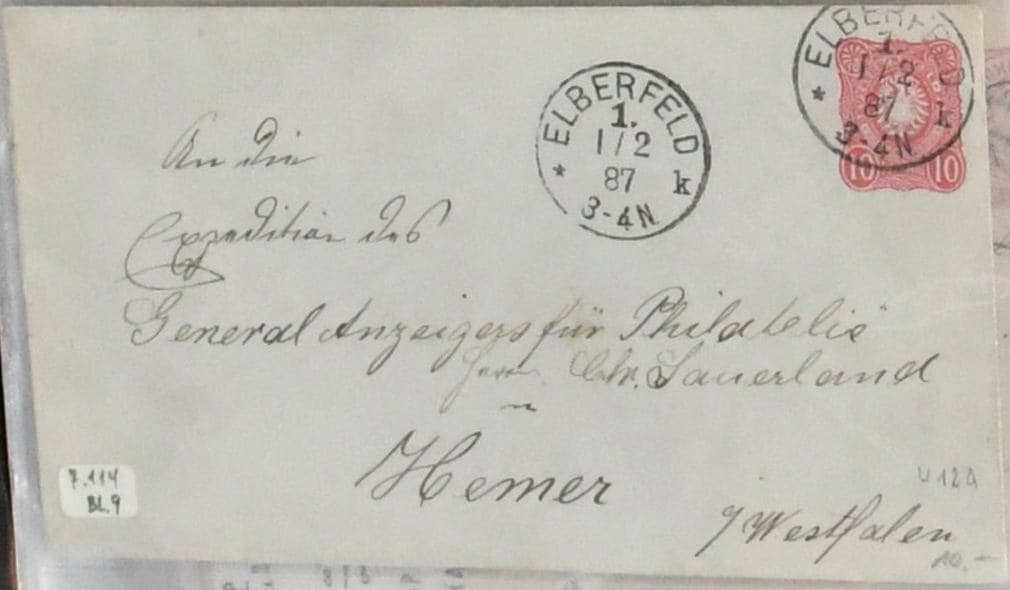 ELBERFELD
1.
1/2
87
* k
3-4N
ELBERFELD
1.
1/2
87
* k
3-4N
10 10
An die
Expedition des
General Anzeigers für Philatelie
Herrn Chr. Sauerland
in
Hemer
i/Westfalen
7.114
BL.9
U 12A
10.-